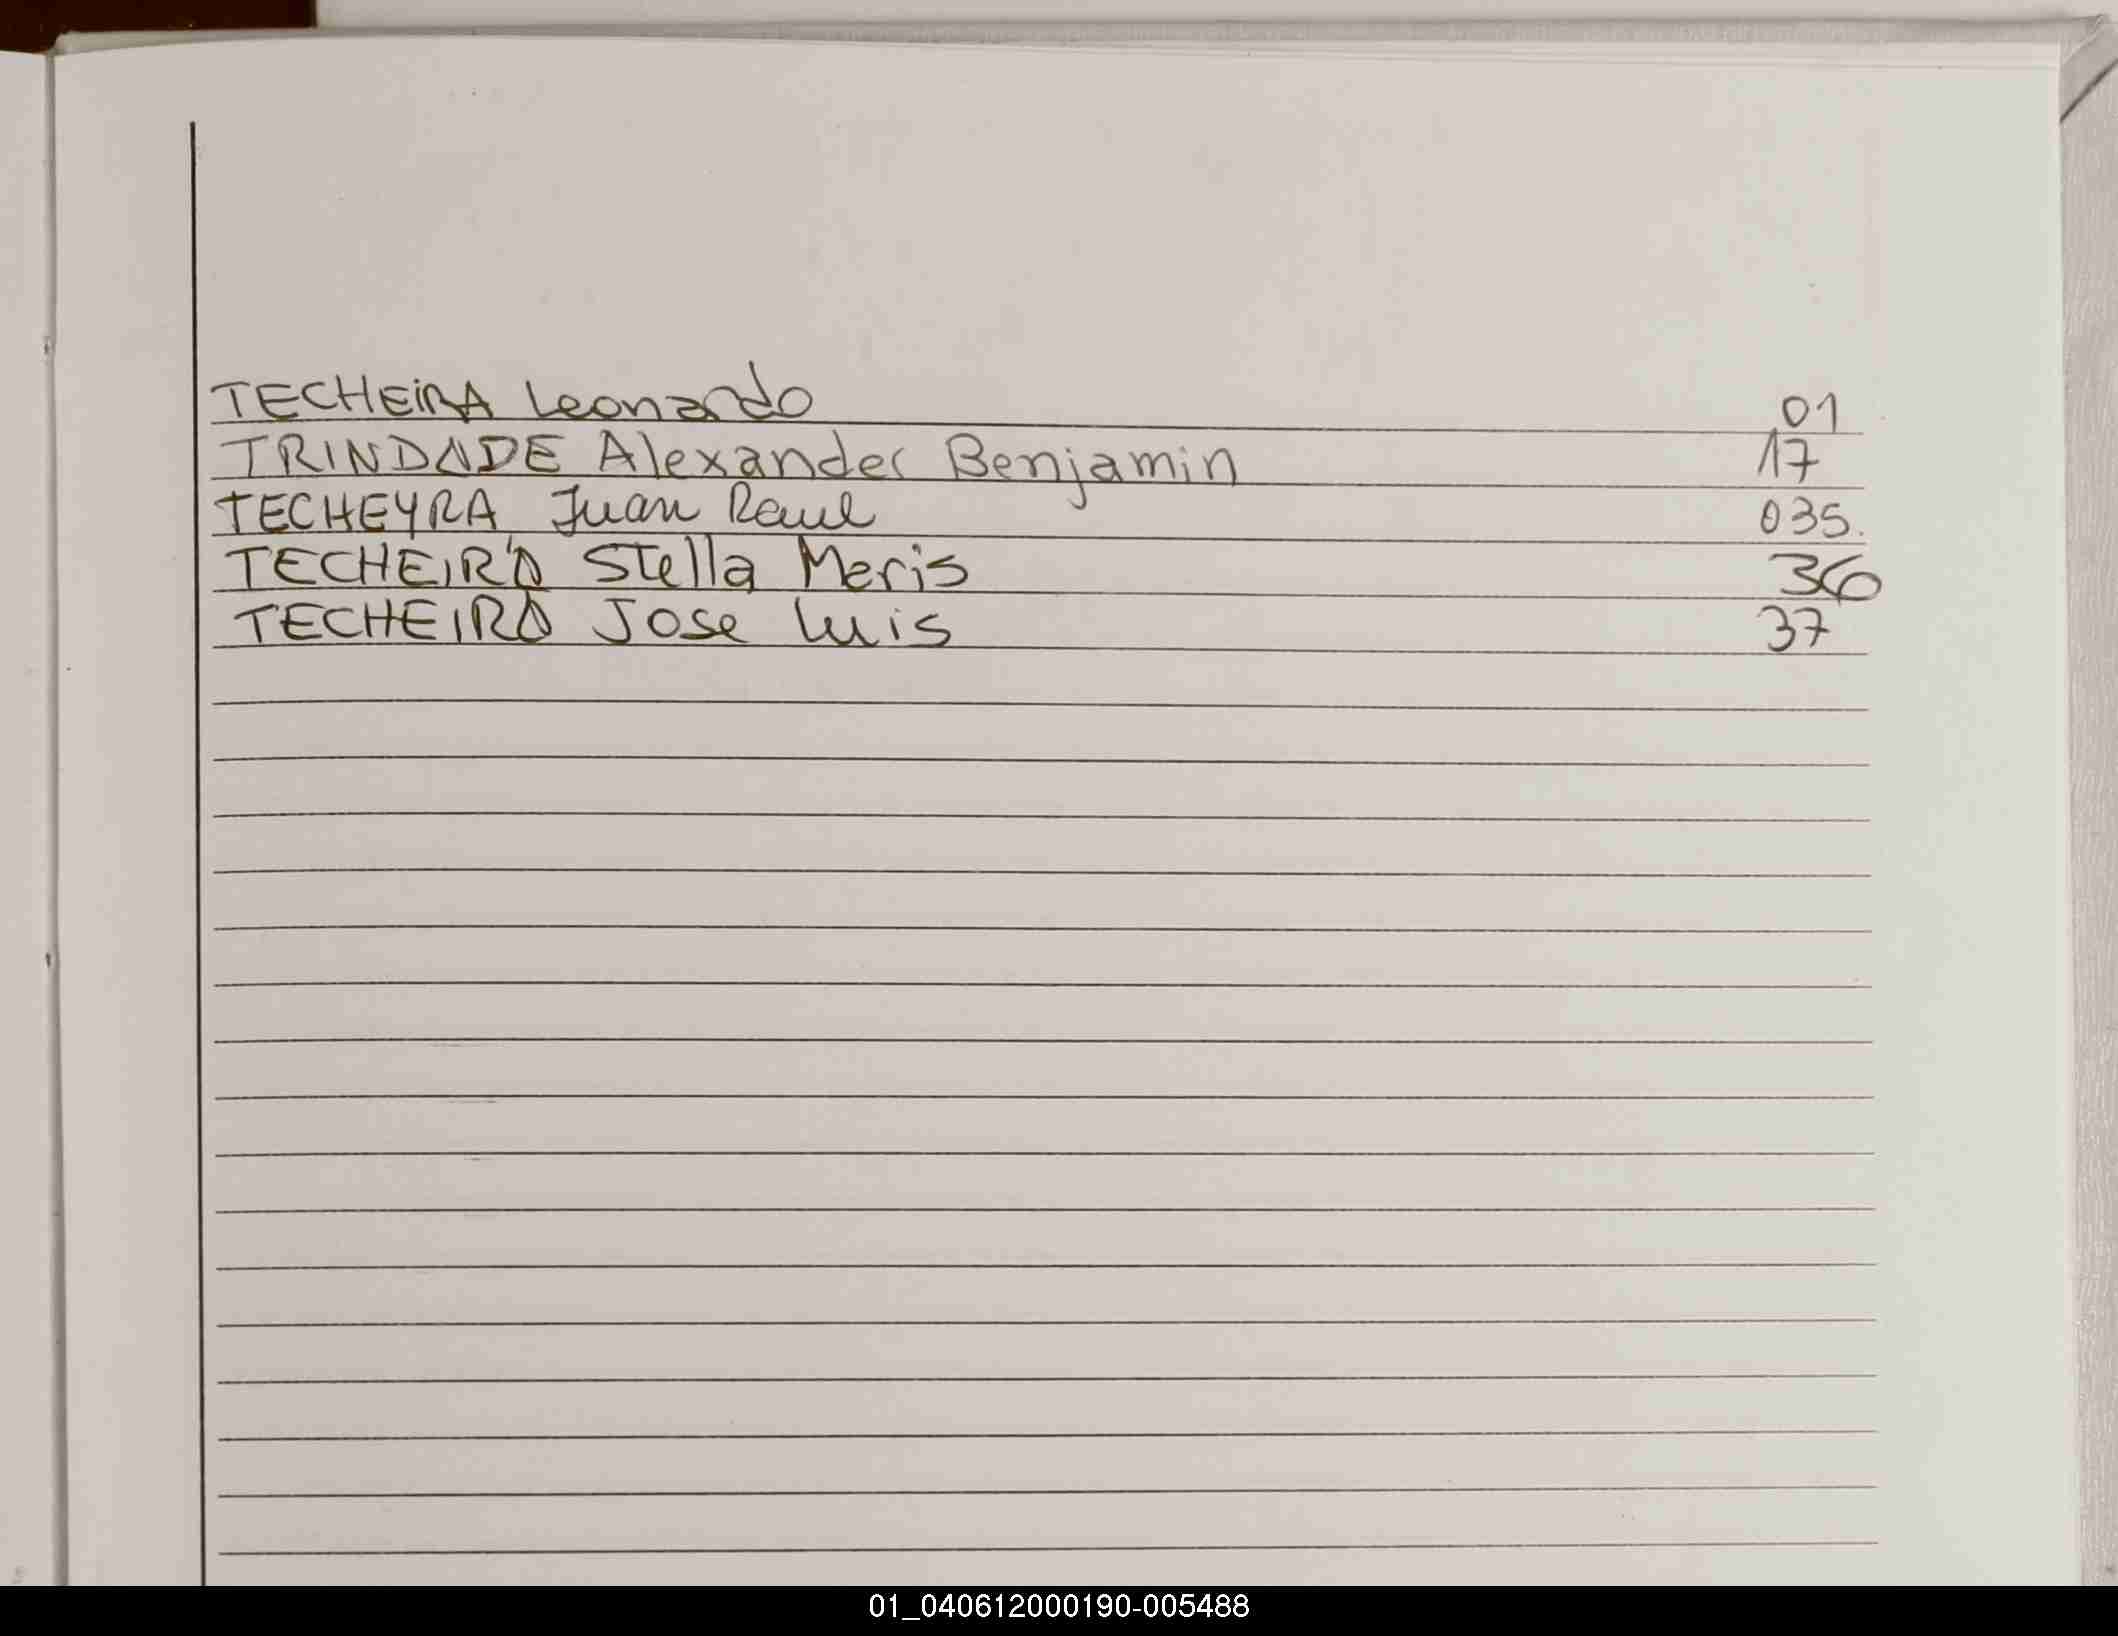 TECHEiRA Leonardo 01
TRINDADE Alexander Benjamin 17
TECHEYRA Juan Raul 035.
TECHEIRA Stella Maris 36
TECHEIRA Jose Luis 37
01_040612000190-005488